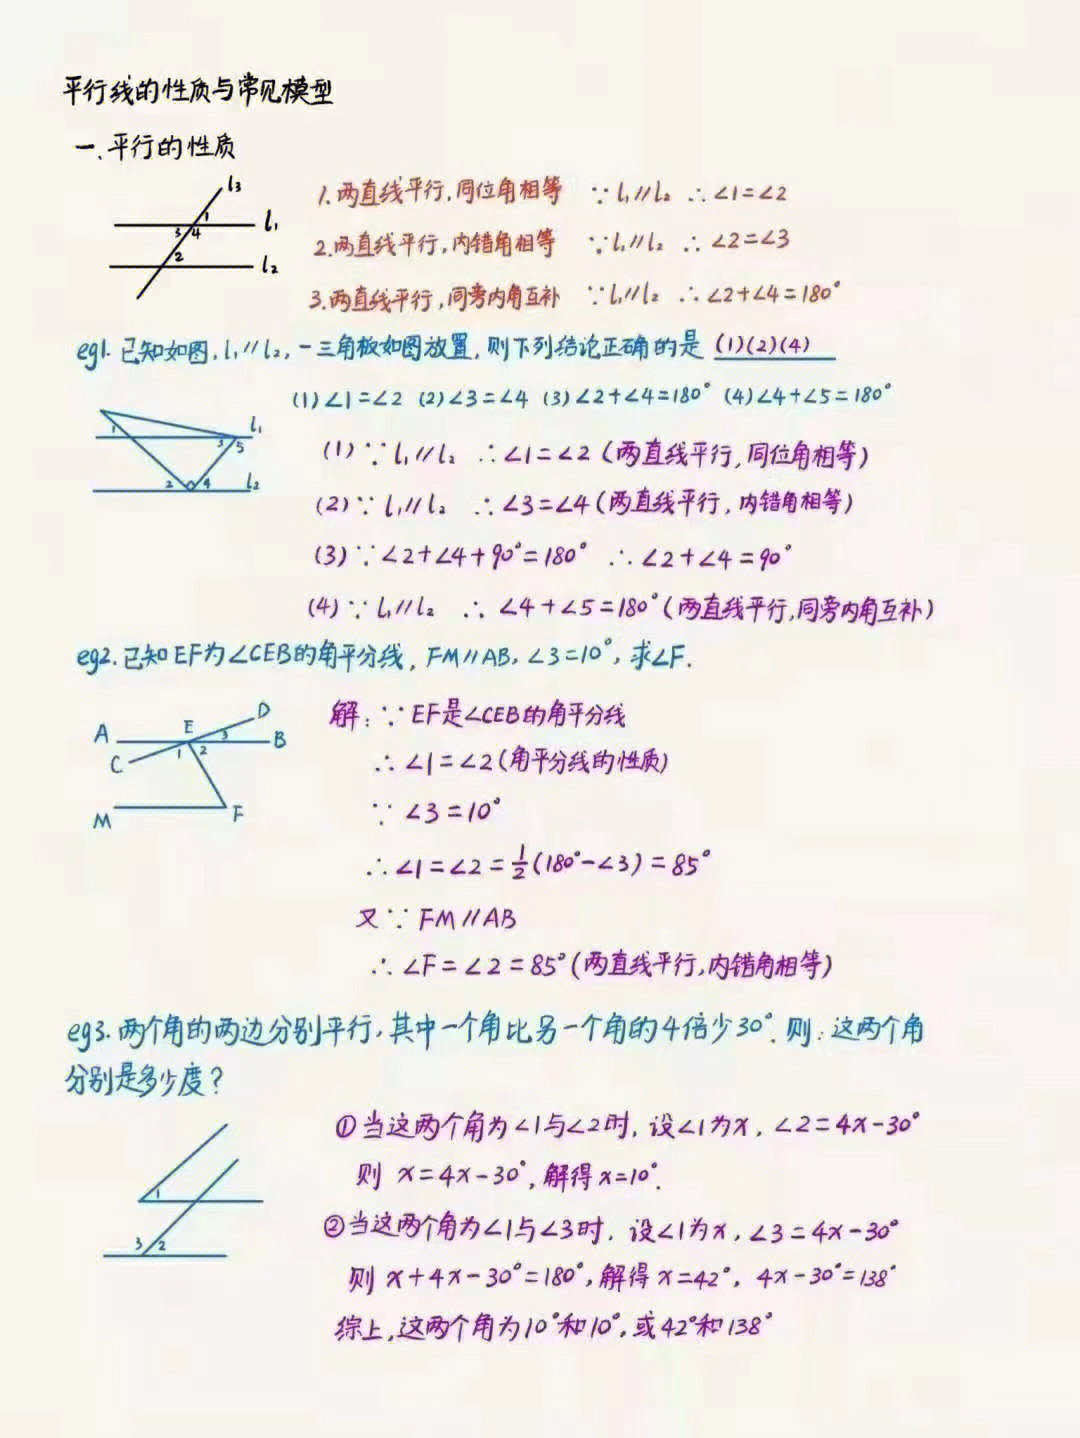 平行线的性质与常见模型
一、平行的性质
l₃
1
l₁
3 4
2
l₂
1.两直线平行,同位角相等 ∵l₁∥l₂ ∴∠1=∠2
2.两直线平行,内错角相等 ∵l₁∥l₂ ∴∠2=∠3
3.两直线平行,同旁内角互补 ∵l₁∥l₂ ∴∠2+∠4=180°
eg1.已知如图,l₁∥l₂,一三角板如图放置,则下列结论正确的是 (1)(2)(4)
(1)∠1=∠2 (2)∠3=∠4 (3)∠2+∠4=180° (4)∠4+∠5=180°
1 3 5 l₁
2 4 l₂
(1)∵l₁∥l₂ ∴∠1=∠2(两直线平行,同位角相等)
(2)∵l₁∥l₂ ∴∠3=∠4(两直线平行,内错角相等)
(3)∵∠2+∠4+90°=180° ∴∠2+∠4=90°
(4)∵l₁∥l₂ ∴∠4+∠5=180°(两直线平行,同旁内角互补)
eg2.已知EF为∠CEB的角平分线,FM∥AB,∠3=10°,求∠F.
D
A E 3 B
C 1 2
M F
解:∵EF是∠CEB的角平分线
∴∠1=∠2(角平分线的性质)
∵∠3=10°
∴∠1=∠2=½(180°-∠3)=85°
又∵FM∥AB
∴∠F=∠2=85°(两直线平行,内错角相等)
eg3.两个角的两边分别平行,其中一个角比另一个角的4倍少30°.则:这两个角
分别是多少度?
1
3 2
①当这两个角为∠1与∠2时,设∠1为x,∠2=4x-30°
则 x=4x-30°,解得x=10°.
②当这两个角为∠1与∠3时,设∠1为x,∠3=4x-30°
则 x+4x-30°=180°,解得x=42°,4x-30°=138°
综上,这两个角为10°和10°,或42°和138°